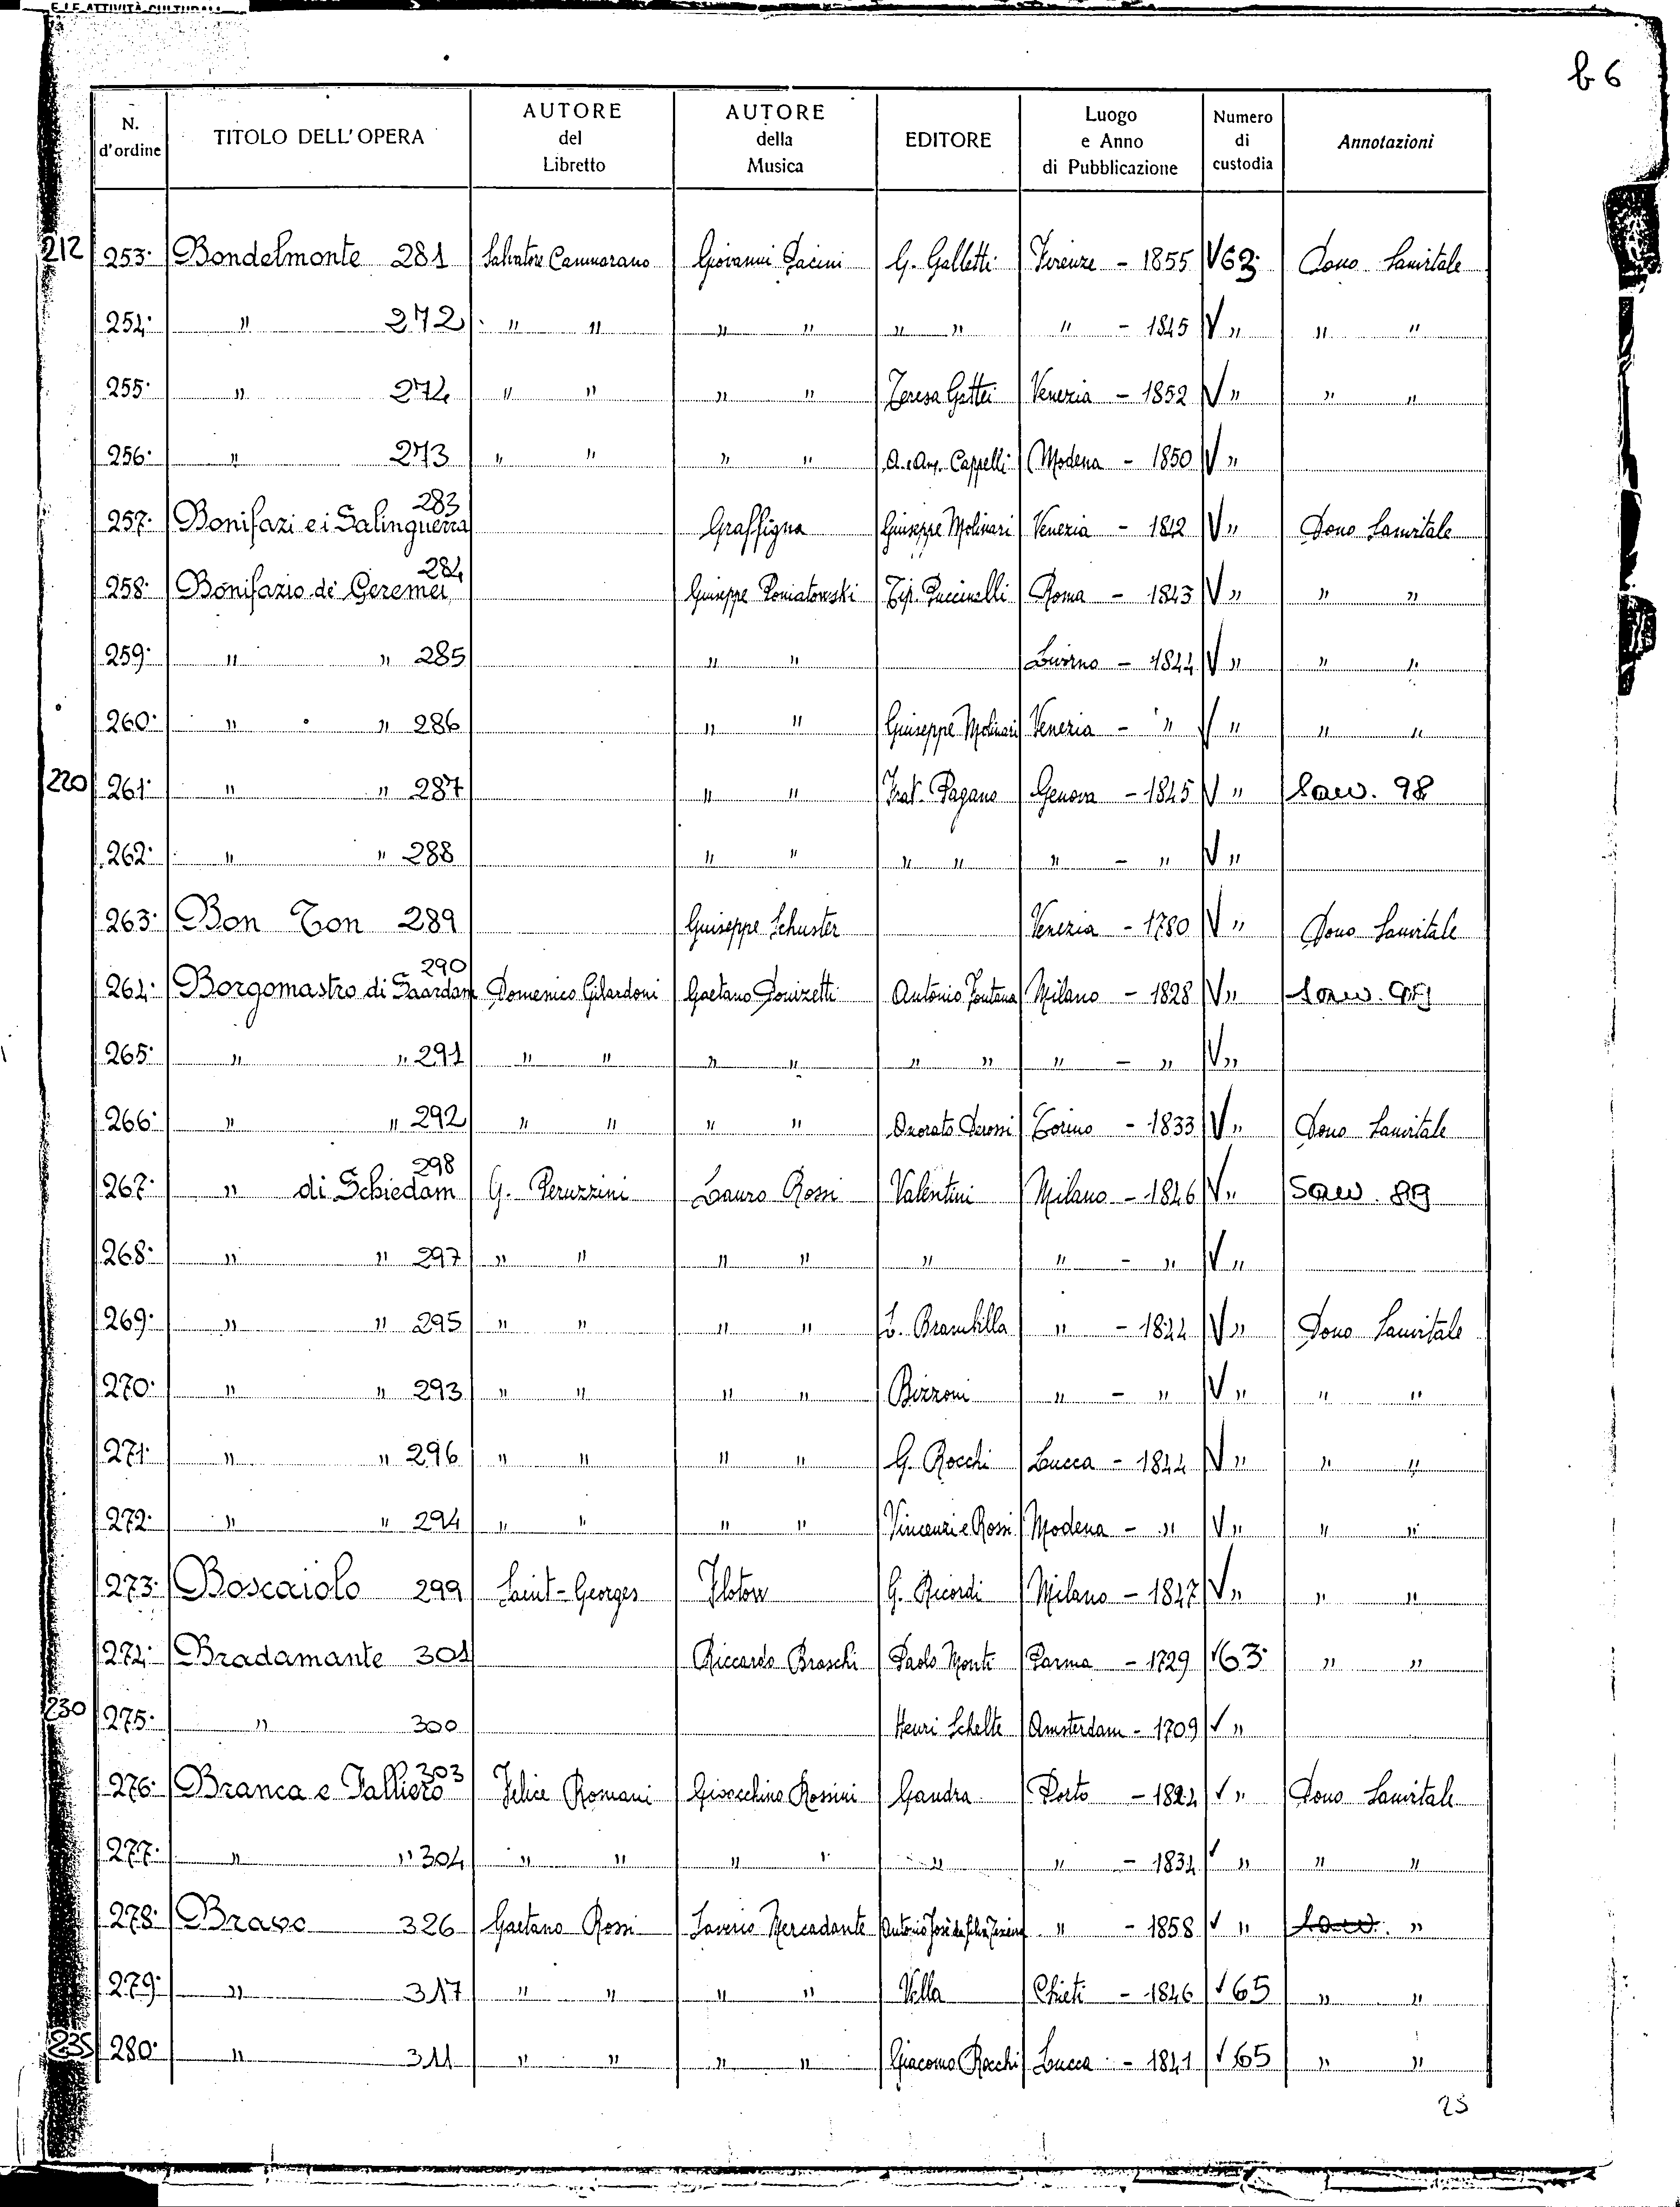 E LE ATTIVITÀ CULTURALI
b 6
N. d'ordine TITOLO DELL'OPERA AUTORE del Libretto AUTORE della Musica EDITORE Luogo e Anno di Pubblicazione Numero di custodia Annotazioni
212 253. Bondelmonte 281 Salvatore Cammarano Giovanni Pacini G. Galletti Firenze - 1855 V 63. Dono Sanvitale
254. " 272 " " " " " " " - 1845 V " " "
255. " 274 " " " " Teresa Gattei Venezia - 1852 V " " "
256. " 273 " " " " A. e Ang. Cappelli Modena - 1850 V "
257. Bonifazi e i Salinguerra 283 Graffigna Giuseppe Molinari Venezia - 1842 V " Dono Sanvitale
258. Bonifazio dè Geremei 284 Giuseppe Poniatowski Tip. Puccinelli Roma - 1843 V " " "
259. " " 285 " " Livorno - 1844 V " " "
260. " " 286 " " Giuseppe Molinari Venezia - " V " " "
220 261. " " 287 " " Frat. Pagano Genova - 1845 V " Sanv. 98
262. " " 288 " " " " " - " V "
263. Bon Ton 289 Giuseppe Schuster Venezia - 1780 V " Dono Sanvitale
264. Borgomastro di Saardam 290 Domenico Gilardoni Gaetano Donizetti Antonio Fontana Milano - 1828 V " Sanv.
265. " " 291 " " " " " " " - " V "
266. " " 292 " " " " Onorato Derossi Torino - 1833 V " Dono Sanvitale
267. " di Schiedam 298 G. Peruzzini Lauro Rossi Valentini Milano - 1846 V " Sanv. 89
268. " " 297 " " " " " " - " V "
269. " " 295 " " " " L. Brambilla " - 1844 V " Dono Sanvitale
270. " " 293 " " " " Bizzoni " - " V " " "
271. " " 296 " " " " G. Rocchi Lucca - 1844 V " " "
272. " " 294 " " " " Vincenzi e Rossi Modena - " V " " "
273. Boscaiolo 299 Saint-Georges Flotow G. Ricordi Milano - 1847 V " " "
274. Bradamante 301 Riccardo Broschi Paolo Monti Parma - 1729 V 63. " "
230 275. " 300 Henri Schelte Amsterdam - 1709 V "
276. Branca e Falliero 303 Felice Romani Gioacchino Rossini Gandra Porto - V " Dono Sanvitale
277. " " 304 " " " " " " - 1834 V " " "
278. Bravo 326 Gaetano Rossi Saverio Mercadante Antonio José da Silva " - 1858 V " Sanv. "
279. " 317 " " " " Vella Chieti - 1846 V 65 " "
235 280. " 311 " " " " Giacomo Rocchi Lucca - 1841 V 65 " "
25